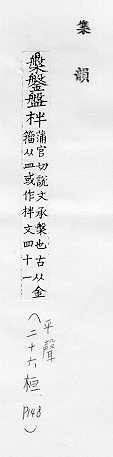 集韻
槃鎜盤柈
蒲官切說文承槃也古从金
籀从皿或作柈文四十一
(平聲
二十六桓
P148)